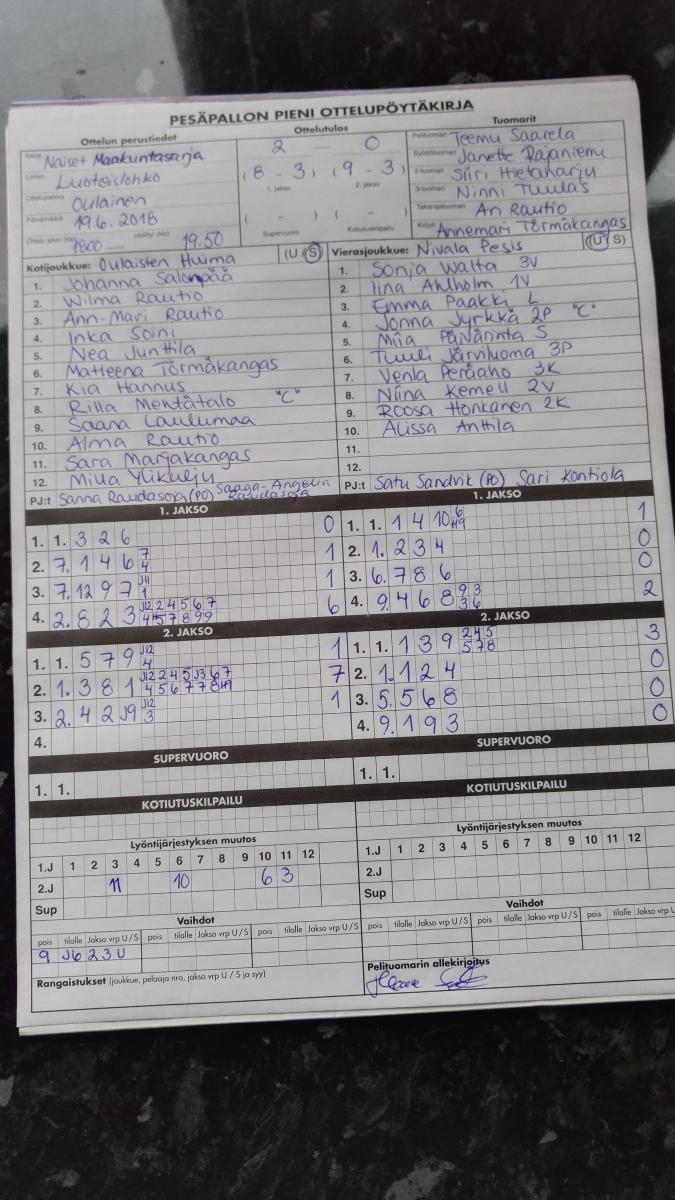 PESÄPALLON PIENI OTTELUPÖYTÄKIRJA
Ottelun perustiedot
Ottelutulos
Tuomarit
Sarja Naiset Maakuntasarja
Lohko Luoteislohko
Ottelupaikka Oulainen
Päivämäärä 19.6.2018
1800 — 19.50
2 — 0
(8 - 3) (9 - 3)
1. jakso 2. jakso
( - ) ( - )
Supervuoro Kotiutuskilpailu
Pelituomari Teemu Saarela
Syöttötuomari Janette Rajaniemi
2-tuomari Siiri Hietaharju
3-tuomari Ninni Tuulas
Takarajatuomari Ari Rautio
Kirjuri Annemari Törmäkangas
Kotijoukkue: Oulaisten Huima (U / S)
1. Johanna Salonpää
2. Wilma Rautio
3. Ann-Mari Rautio
4. Inka Soini
5. Nea Junttila
6. Matleena Törmäkangas
7. Kia Hannus
8. Rilla Mentätalo "C"
9. Saana Laulumaa
10. Alma Rautio
11. Sara Marjakangas
12. Milla Ylikulju
PJ:t Sanna Raudasoja (PO) Saaga-Angelia Raudasoja
Vierasjoukkue: Nivala Pesis (U / S)
1. Sonja Walta 3V
2. Iina Ahlholm 1V
3. Emma Paakki L
4. Jonna Jyrkkä 2P "C"
5. Miia Päivärinta S
6. Tuuli Järviluoma 3P
7. Venla Peräaho 3K
8. Niina Kemell 2V
9. Roosa Honkanen 2K
10. Alissa Anttila
11.
12.
PJ:t Satu Sandvik (PO) Sari Kontiola
1. JAKSO
1. 1. 3 2 6 0
2. 7. 1 4 6 7 4 1
3. 7. 12 9 7 J11 1 1
4. 2. 8 2 3 6
2. JAKSO
1. 1. 5 7 9 J12 4 1
2. 1. 3 8 1 7
3. 2. 4 2 J9 J12 3 1
4.
SUPERVUORO
1. 1.
KOTIUTUSKILPAILU
1. JAKSO
1. 1. 1 4 10 1
2. 1. 2 3 4 0
3. 6. 7 8 6 0
4. 9. 4 6 8 9 3 3 6 2
2. JAKSO
1. 1. 1 3 9 2 4 5 5 7 8 3
2. 1. 1 2 4 0
3. 5. 5 6 8 0
4. 9. 1 9 3 0
SUPERVUORO
1. 1.
KOTIUTUSKILPAILU
Lyöntijärjestyksen muutos
1.J 1 2 3 4 5 6 7 8 9 10 11 12
2.J 11 10 6 3
Sup
Vaihdot
pois tilalle Jakso vrp U/S pois tilalle Jakso vrp U/S pois tilalle Jakso vrp U/S
9 J6 2 3 U
Rangaistukset (joukkue, pelaaja nro, jakso vrp U / S ja syy)
Lyöntijärjestyksen muutos
1.J 1 2 3 4 5 6 7 8 9 10 11 12
2.J
Sup
Vaihdot
pois tilalle Jakso vrp U/S pois tilalle Jakso vrp U/S pois tilalle Jakso vrp U/S
Pelituomarin allekirjoitus